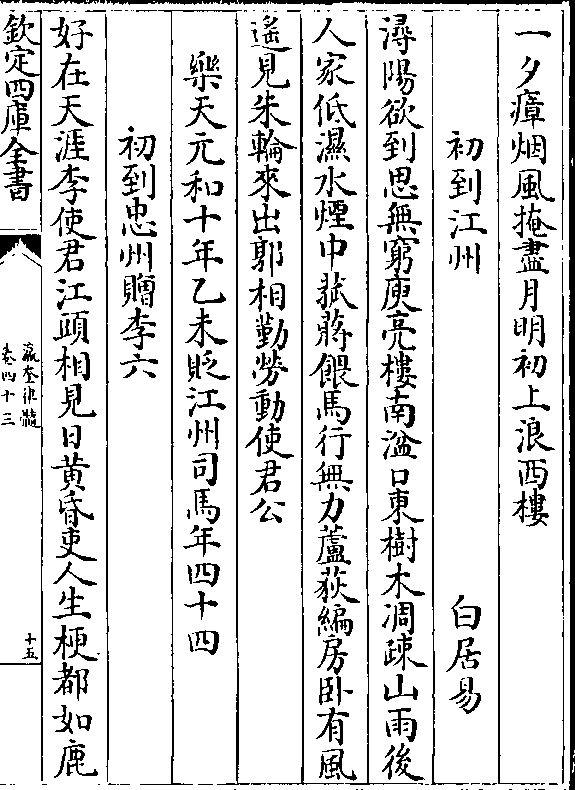 一夕瘴烟風掩盡月明初上浪西樓
初到江州 白居易
潯陽欲到思無窮庾亮樓南湓口東樹木凋疎山雨後
人家低濕水煙中菰蔣餵馬行無力蘆荻編房卧有風
遙見朱輪來出郭相勤勞動使君公
樂天元和十年乙未貶江州司馬年四十四
初到忠州贈李六
好在天涯李使君江頭相見日黄昏吏人生梗都如鹿
欽定四庫全書
瀛奎律髓
卷四十三
十五